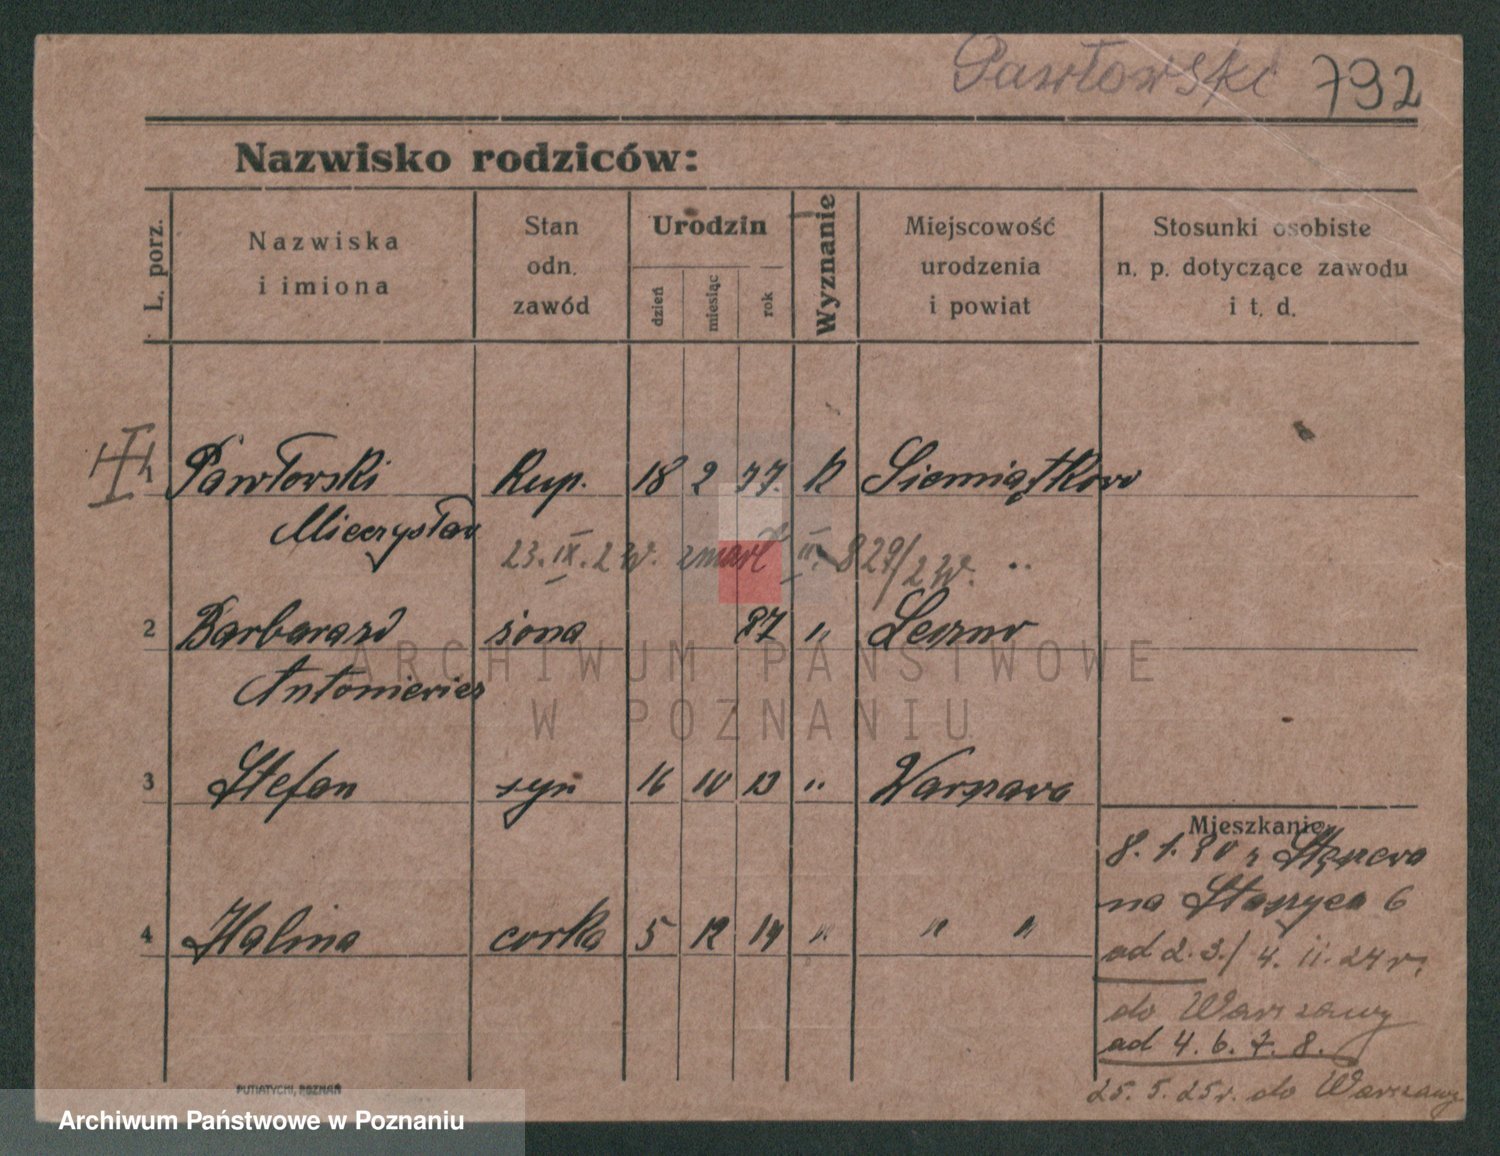 Pawłowski 792
Nazwisko rodziców:
L. porz.
Nazwiska
i imiona
Stan
odn.
zawód
Urodzin
dzień
miesiąc
rok
Wyznanie
Miejscowość
urodzenia
i powiat
Stosunki osobiste
n. p. dotyczące zawodu
i t. d.
1 Pawłowski Kup. 18 2 77. K Siemiątkowo
Mieczysław
23.IX.23r. zmarł III. 829/23r.
2 Barbara żona 87 " Leszno
Antoniewicz
3 Stefan syn 16 10 13 " Warszawa
4 Halina corka 5 12 14 " " "
Mieszkanie
8. 1. 20 z
na Staszyca 6
ad 2. 3./ 4. II. 24 r.
do Warszawy
ad 4. 6. 7. 8.
25. 5. 25r. do Warszawy
PUTIATYCKI, POZNAŃ
ARCHIWUM PAŃSTWOWE
W POZNANIU
Archiwum Państwowe w Poznaniu